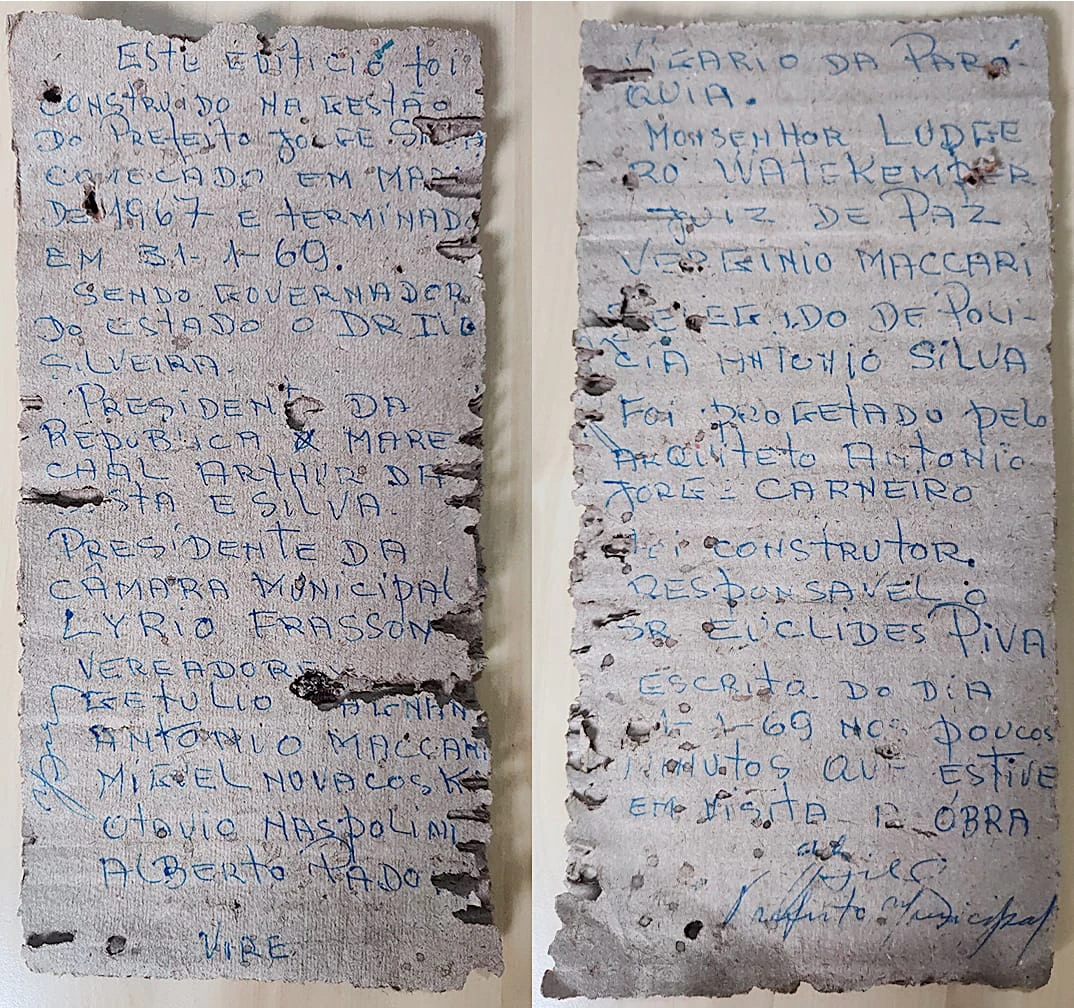 ESTE EDIFICIO foi
CONSTRUIDO NA GESTÃO
DO PREFEITO JORGE SILVA
COMECADO EM
DE 1967 E TERMINADO
EM 31-1-69.
SENDO GOVERNADOR
DO ESTADO O DR IVO
SILVEIRA.
PRESIDENTE DA
REPUBLICA MARE
CHAL ARTHUR DA
COSTA E SILVA.
PRESIDENTE DA
CÂMARA MUNICIPAL
LYRIO FRASSON
VEREADORES
GETULIO
ANTONIO MACCARI
MIGUEL NOVACOSKI
OTAVIO NASPOLINI
ALBERTO TADO
VIRE
VIGARIO DA PARÓ-
QUIA.
MONSENHOR LUDGE
RO WATEKEMPER
JUIZ DE PAZ
VERGINIO MACCARI
DE POLI-
CIA ANTONIO SILVA
FOI PROGETADO PELO
ARQUITETO ANTONIO
JORGE CARNEIRO
FOI CONSTRUTOR
RESPONSAVEL O
SR EUCLIDES PIVA
ESCRITO DO DIA
1-69 NOS POUCOS
MINUTOS QUE ESTIVE
EM VISITA A OBRA
Prefeito Municipal